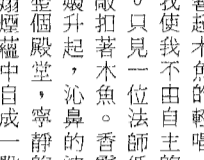 木魚的
使我不由自主的
。只見一位法師低
敲扣著木魚。香
升起，沁鼻的
整個殿堂，寧靜的
煙蘊中自成一